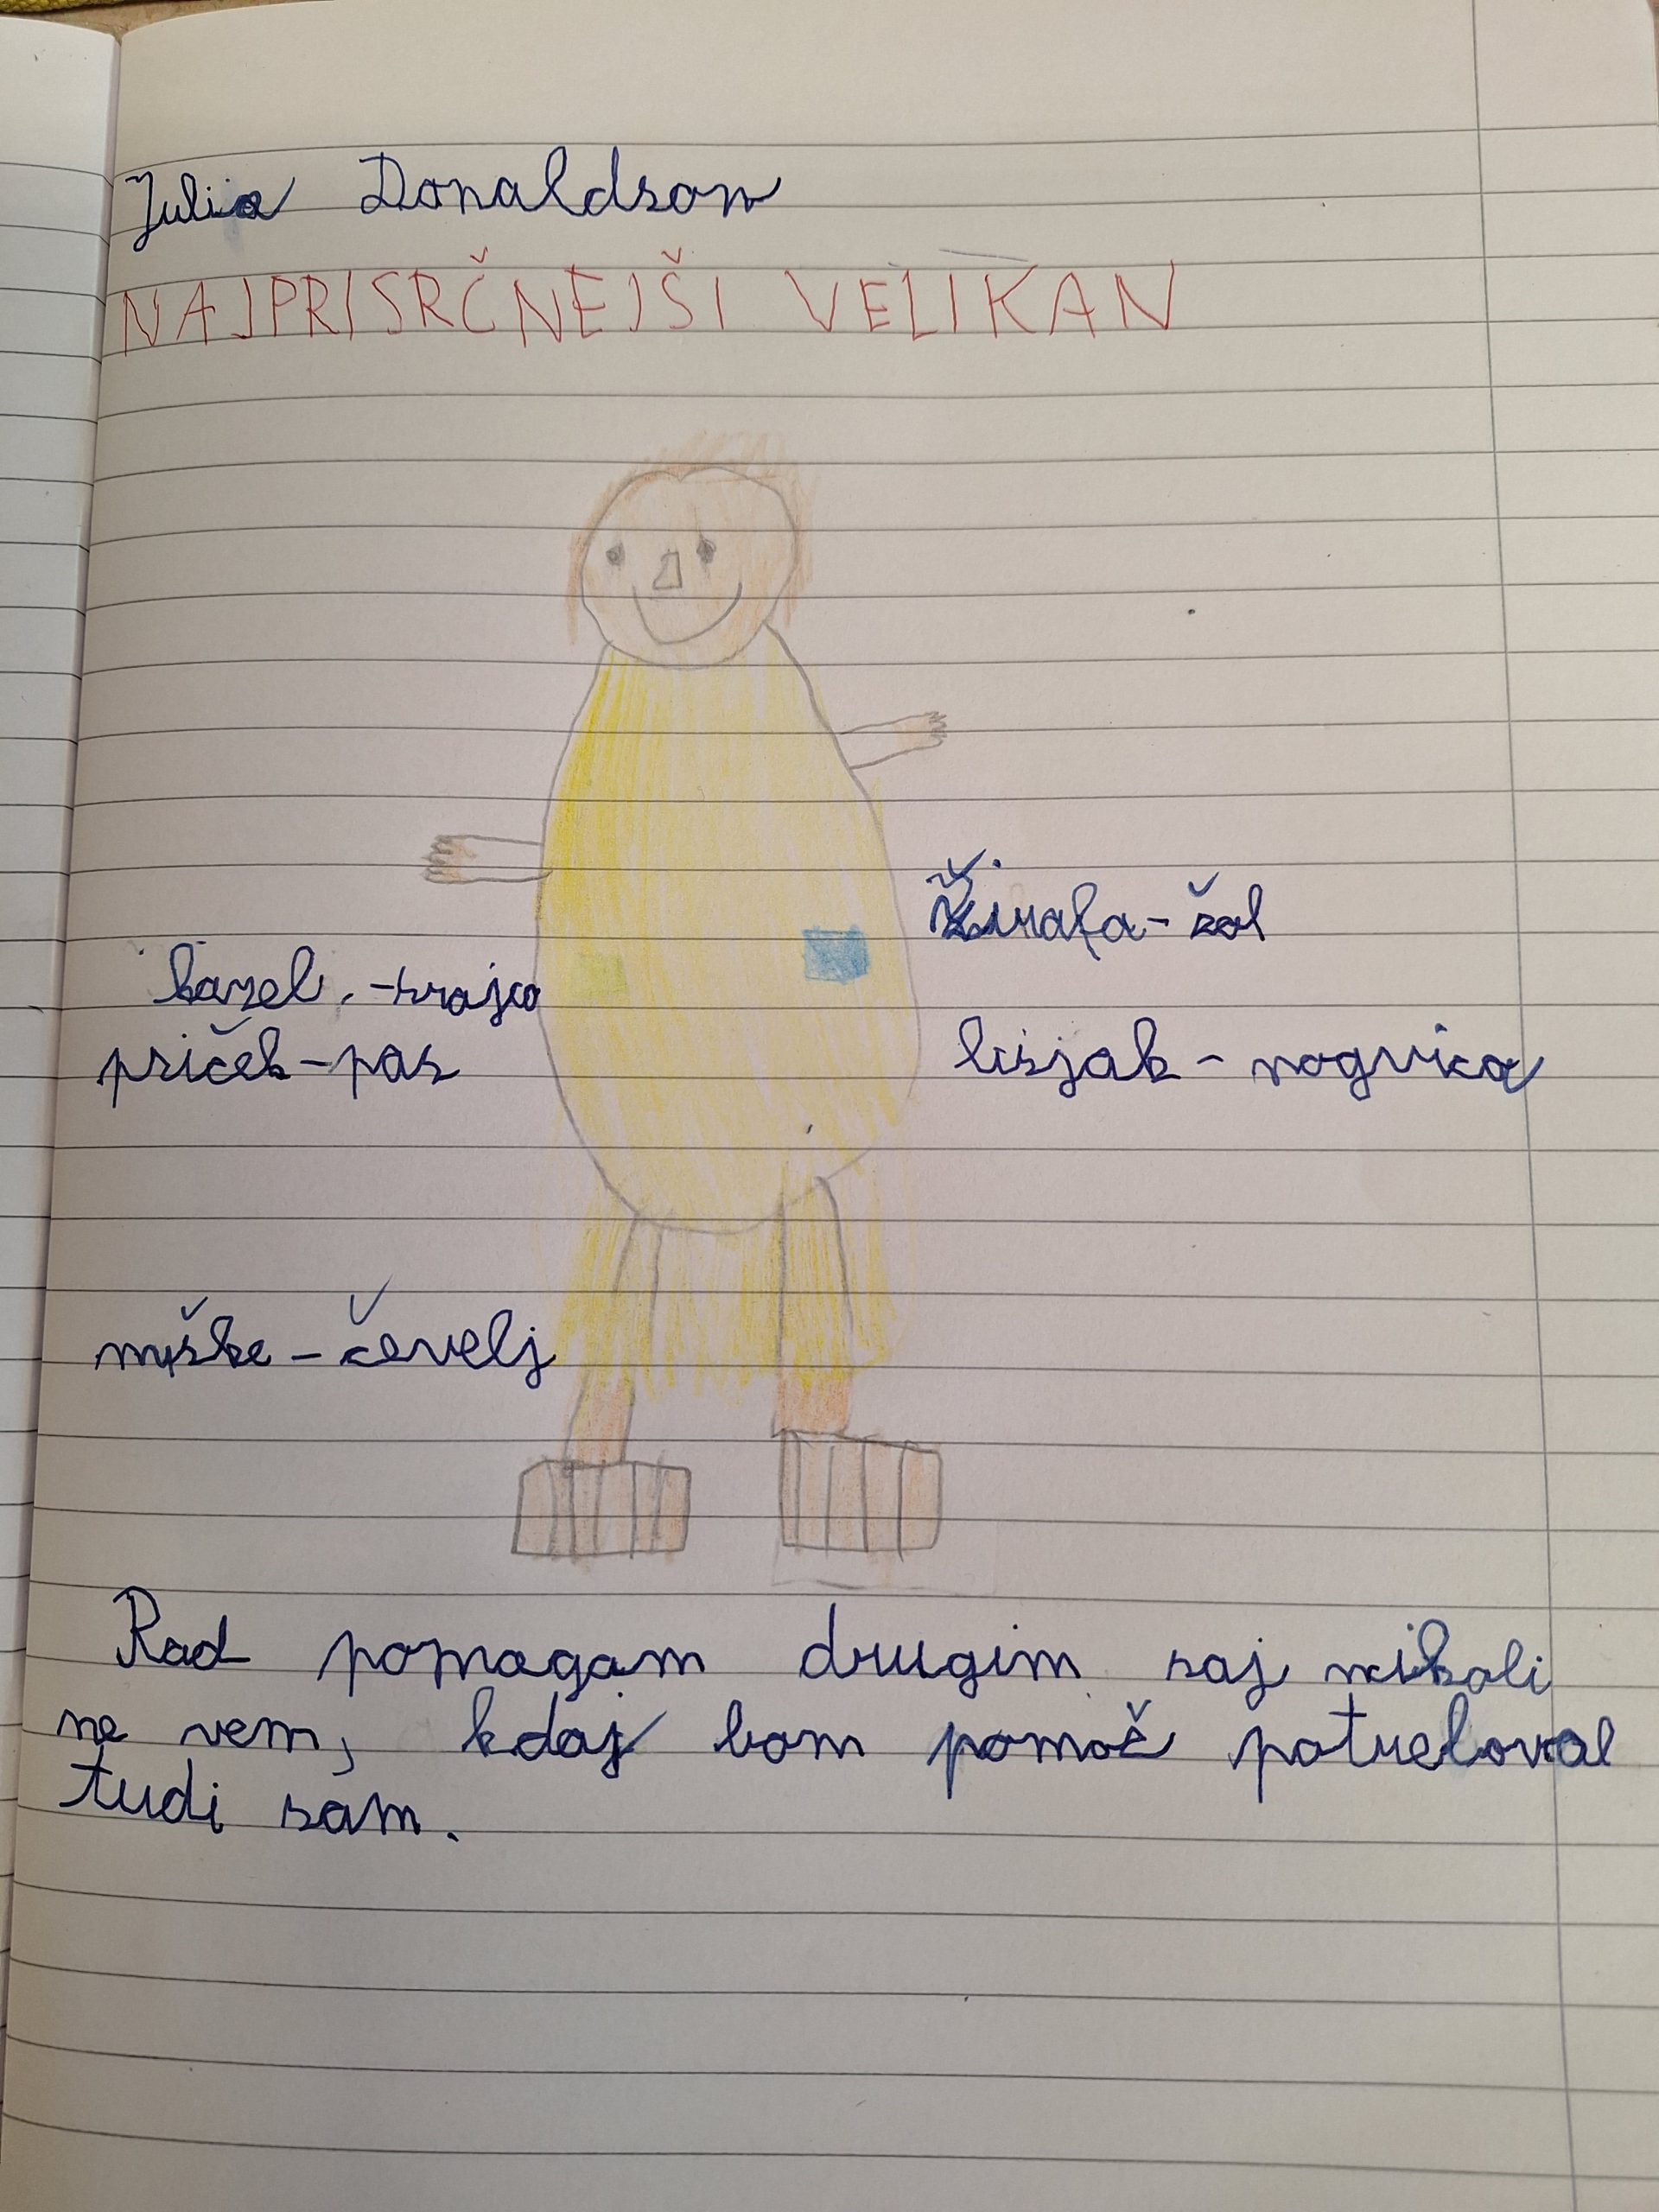 Julia Donaldson
NAJPRISRČNEJŠI VELIKAN
Žirafa - šal
kozel - srajca
priček - pas
lisjak - nogvica
miške - čevelj
Rad pomagam drugim saj nikoli
ne vem, kdaj bom pomoč potreboval
tudi sam.